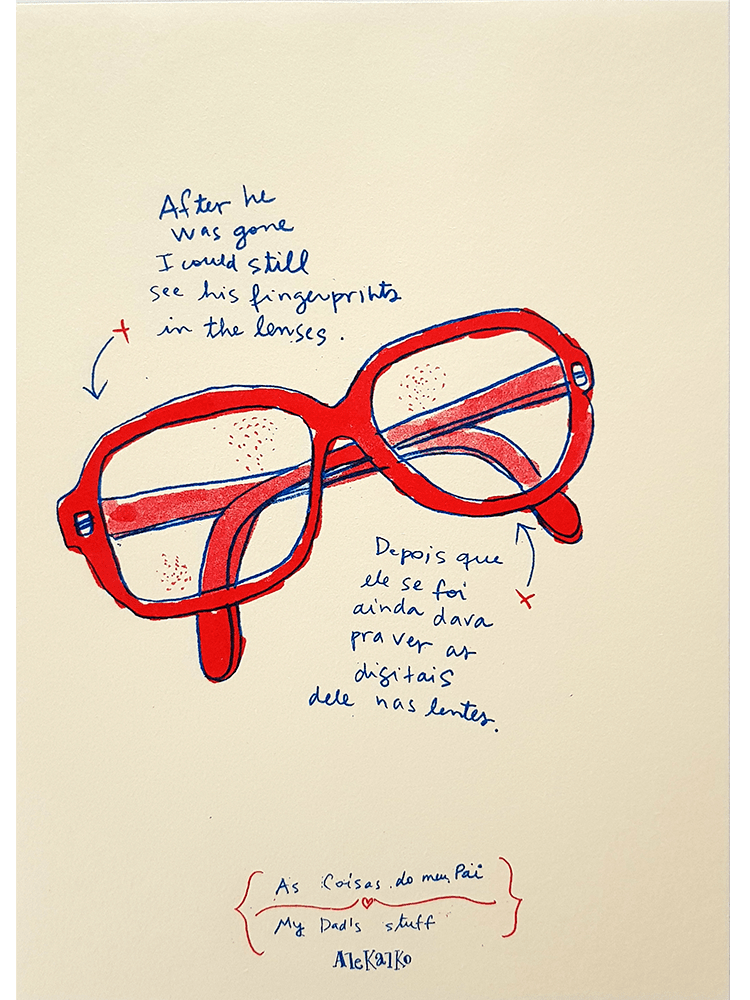 After he
was gone
I could still
see his fingerprints
in the lenses.
Depois que
ele se foi
ainda dava
pra ver as
digitais
dele nas lentes.
As Coisas do meu Pai
My Dad's stuff
AleKalKo